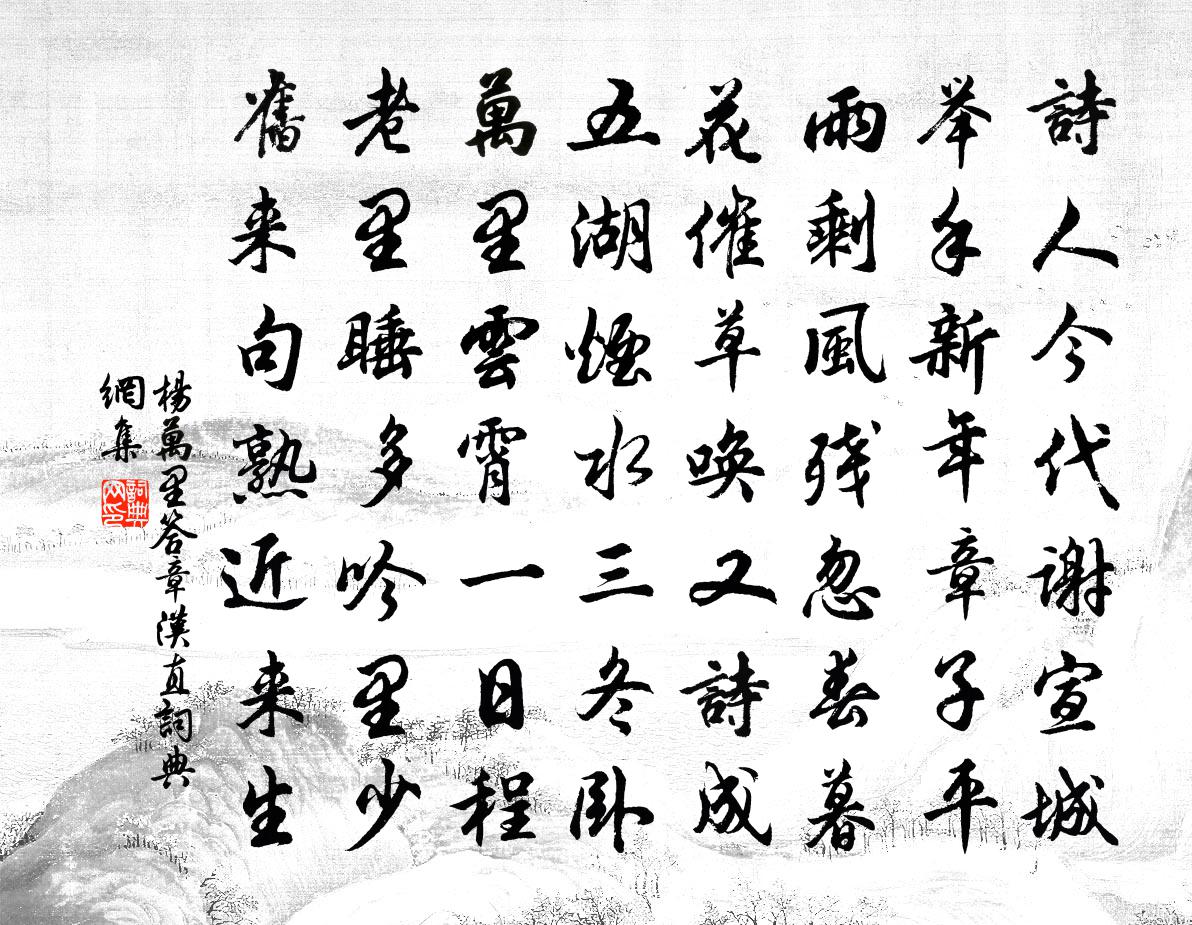 詩人今代謝宣城
举手新年章子平
雨剩風残忽春暮
花催草唤又詩成
五湖煙水三冬卧
萬里雲霄一日程
老里睡多吟里少
舊来句熟近来生
楊萬里答章漢直詞典
網集
詞典
网印